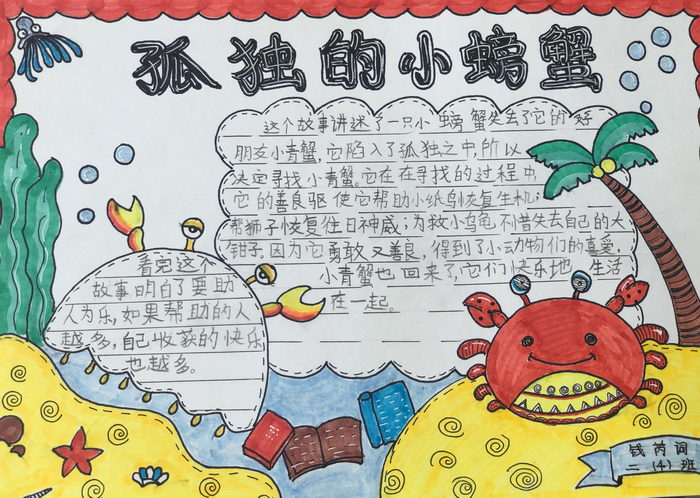 孤独的小螃蟹
这个故事讲述了一只小螃蟹失去了它的好
朋友小青蟹,它陷入了孤独之中,所以
决定寻找小青蟹。它在在寻找的过程中,
它的善良驱使它帮助小纸鸟恢复生机;
帮狮子恢复往日神威;为救小乌龟不惜失去自己的大
钳子。因为它勇敢又善良,得到了小动物们的喜爱,
小青蟹也回来了,它们快乐地生活
在一起。
看完这个
故事明白了要助
人为乐,如果帮助的人
越多,自己收获的快乐
也越多。
钱芮词
二(4)班